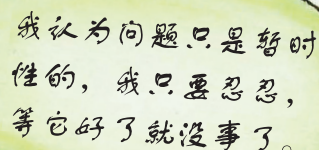 我认为问题只是暂时
性的，我只要忍忍，
等它好了就没事了。